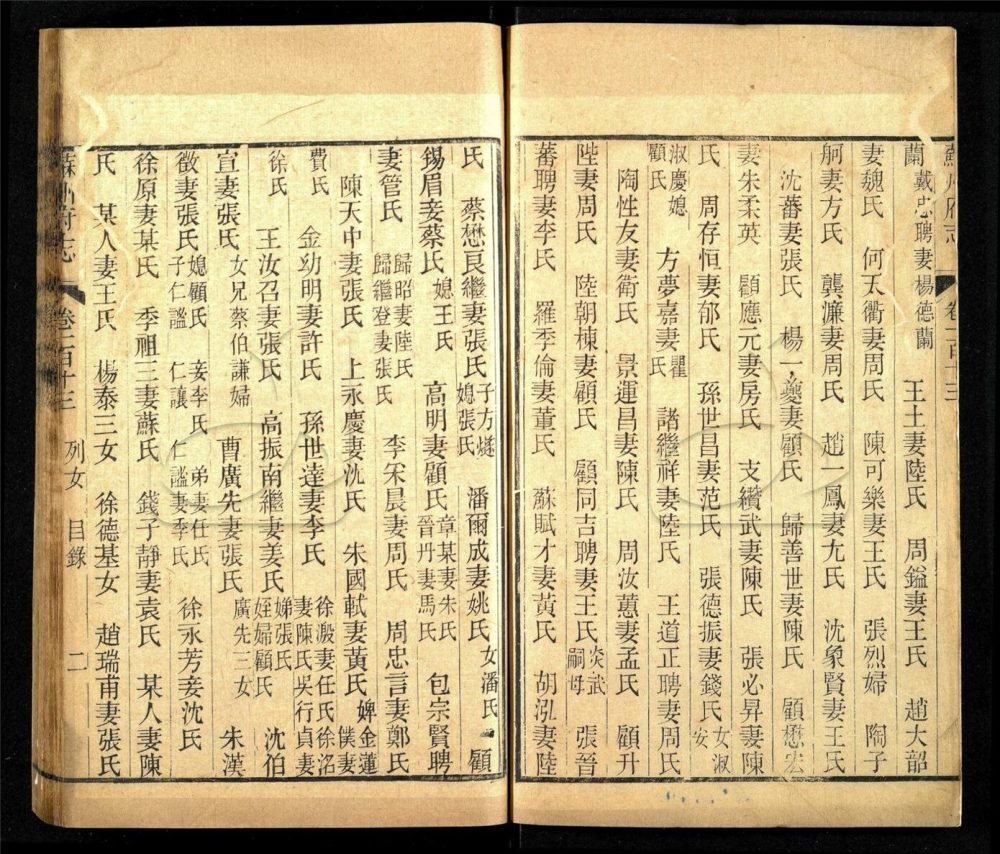 蘇州府志 卷一百十三
蘭 戴忠聘妻楊德蘭 王士妻陸氏 周鎰妻王氏 趙大韶
妻魏氏 何天衢妻周氏 陳可樂妻王氏 張烈婦 陶子
舸妻方氏 龔濂妻周氏 趙一鳳妻尤氏 沈象賢妻王氏
沈蕃妻張氏 楊一夔妻顧氏 歸善世妻陳氏 顧懋宏
妻朱柔英 顧應元妻房氏 支纘武妻陳氏 張必昇妻陳
氏 周存恒妻郁氏 孫世昌妻范氏 張德振妻錢氏 女淑安
淑慶媳顧氏 方夢嘉妻瞿氏 諸繼祥妻陸氏 王道正聘妻周氏
陶性友妻衛氏 景運昌妻陳氏 周汝蕙妻孟氏 顧升
陛妻周氏 陸朝棟妻顧氏 顧同吉聘妻王氏 炎武嗣母 張晉
蕃聘妻李氏 羅季倫妻董氏 蘇賦才妻黃氏 胡泓妻陸
氏 蔡懋良繼妻張氏 子方㷆媳張氏 潘爾成妻姚氏 女潘氏 顧
錫眉妾蔡氏 媳王氏 高明妻顧氏 章某妻朱氏 晉丹妻馬氏 包宗賢聘
妻管氏 歸昭妻陸氏 歸繼登妻張氏 李宋晨妻周氏 周忠言妻鄭氏
陳天中妻張氏 上永慶妻沈氏 朱國軾妻黃氏 婢金蓮 僕妻
費氏 金幼明妻許氏 孫世達妻李氏 徐濲妻任氏 徐洺妻陳氏 吳行貞妻
徐氏 王汝召妻張氏 高振南繼妻姜氏 娣張氏 姪婦顧氏 沈伯
宣妻張氏 女兄蔡伯謙婦 曹廣先妻張氏 廣先三女 朱漢
徵妻張氏 媳顧氏 妾李氏 弟妻任氏 子仁謐 仁讓 仁謐妻季氏 徐永芳妾沈氏
徐原妻某氏 季祖三妻蘇氏 錢子靜妻袁氏 某人妻陳
氏 某人妻王氏 楊泰三女 徐德基女 趙瑞甫妻張氏
蘇州府志 卷一百十三 列女 目錄 二